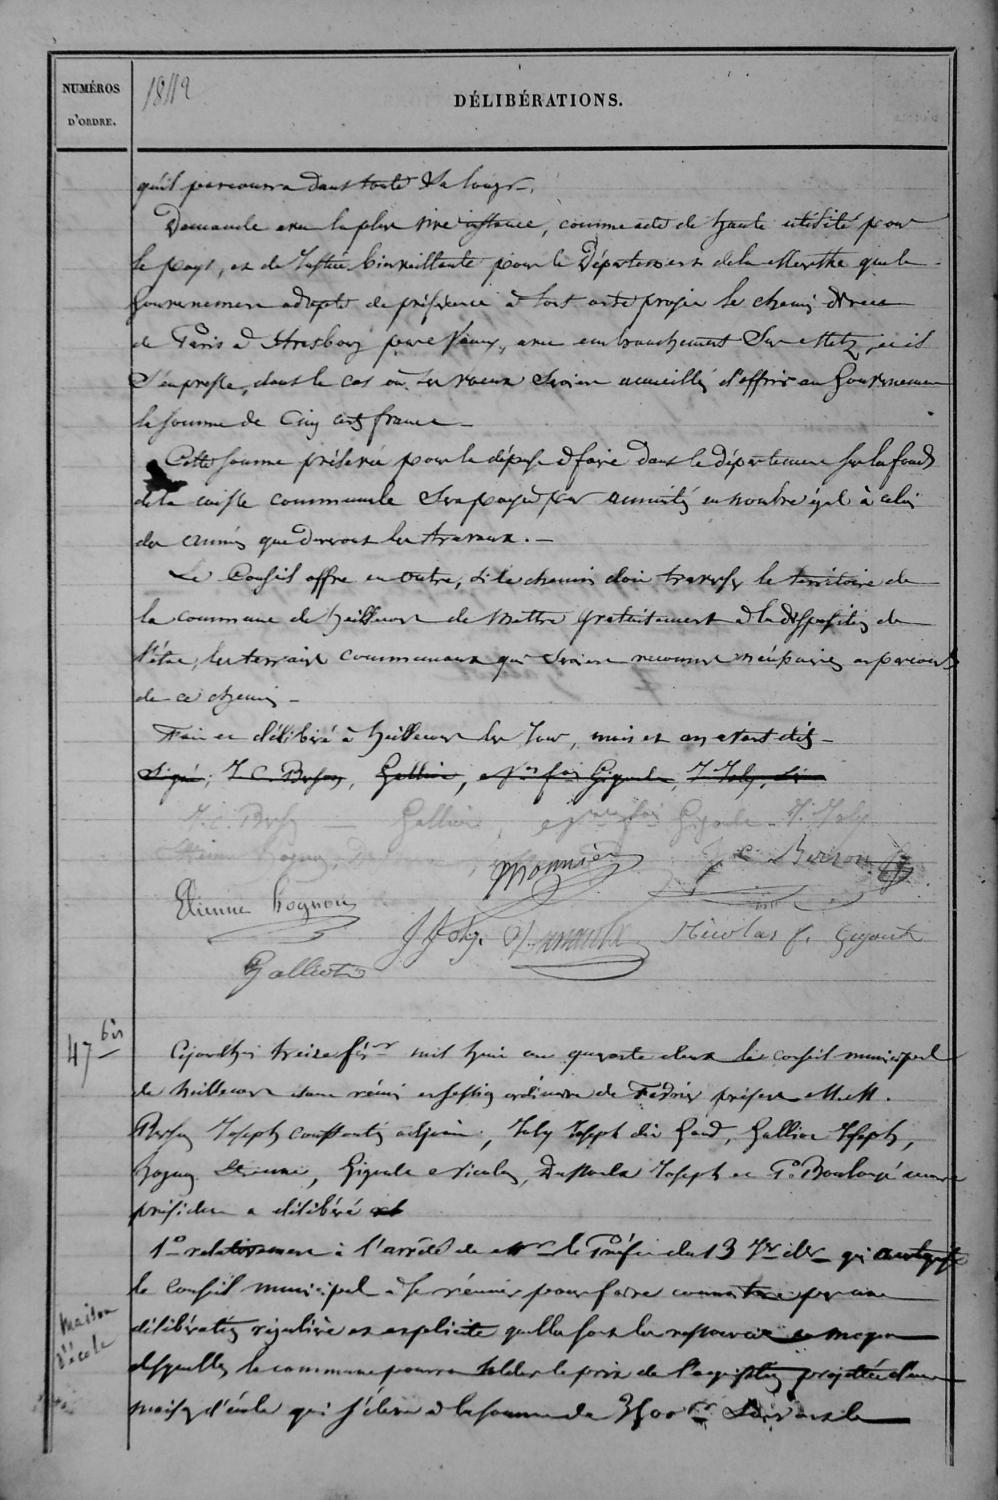 NUMÉROS
D'ORDRE.
1842
DÉLIBÉRATIONS.
qu'il parcourra dans toute sa long^r.
Demande avec la plus vive instance, comme acte de haute utilité pour
le pays, et de Justice bienveillante pour le Département de la Meurthe que le
Gouvernement adopte de préférence à tout autre projet le chemin direct
de Paris à Strasbourg par Nancy, avec embranchement sur Metz, et il
s'empresse, dans le cas où ses vœux seroient accueillis d'offrir au Gouvernement
la somme de Cinq cents francs
Cette somme prélevée pour la dépense à faire dans le département sur les fonds
de la caisse communale sera payée par annuités en nombre égal à celui
des années que dureront les travaux. -
Le Conseil offre en outre, si le chemin doit traverser le territoire de
la commune de heillecourt de mettre gratuitement à la disposition de
l'état, les terrains communaux qui seroient reconnus nécessaires au parcours
de ce chemin -
Fait et délibéré à heillecourt les Jour, mois et an avant dits -
Signé, J C. Berson, Galliot, Nas fois Gigoult, J Joly,
J. C. Bers Galliot, fois Gigoult J. Joly
Monnier J. C. Berson
Etienne hognon
J J Joly. Nicolas f. Gigoult
Galliot
47 bis
Cejourd'hui treize fév^r mil huit cent quarante deux le conseil municipal
de heillecourt étant réuni en session ordinaire de Février présents M.M.
Berson Joseph Constantin adjoint, Joly Joseph dit Gand, Galliot Joseph,
hognon Etienne, Gigoult Nicolas, Joseph et Boulangé maire
président a délibéré
1° relativement à l'arrêté de M^r le Préfet du 13 J^r d^er qui autorise
le Conseil municipal à se réunir pour faire connaitre par une
délibération régulière et explicite quelles sont les ressources au moyen
desquelles la commune pourra solder le prix de l'acquisition projettée d'une
maison d'école qui s'élève à la somme de
Maison
d'école